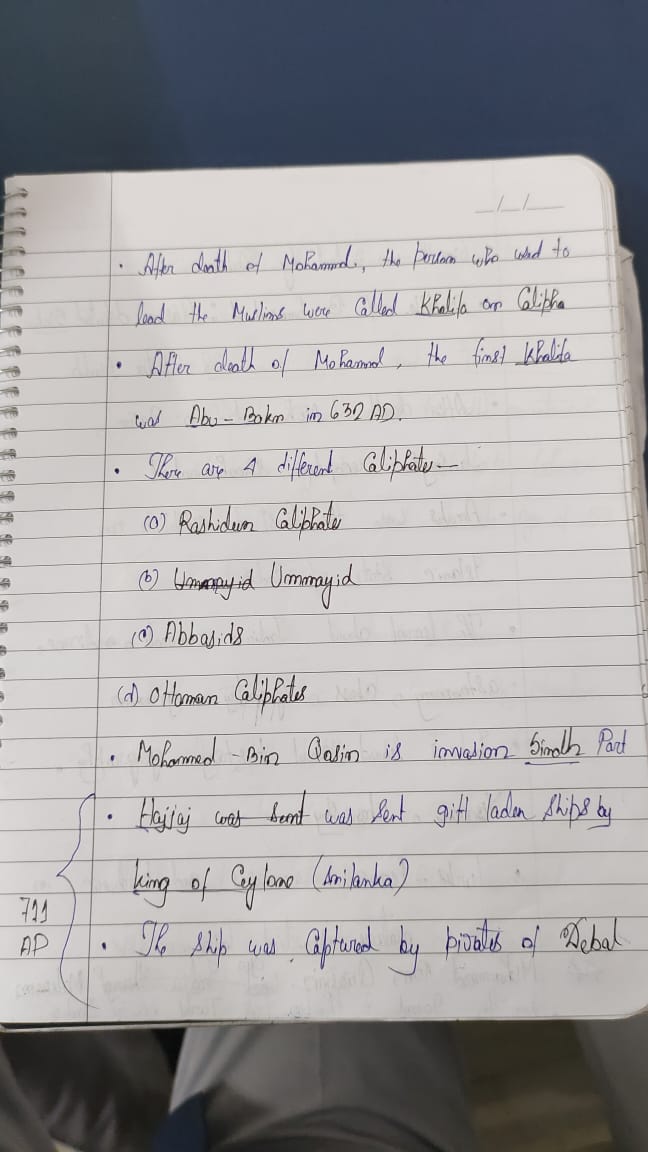 _/_/_
• After death of Mohammd, the person who used to
lead the Muslims were Called Khalifa or Calipha
• After death of Mohammd, the first Khalifa
was Abu - Bakr in 632 AD.
• There are 4 different Caliphate —
(a) Rashidun Caliphate
(b) Ummayid Ummayid
(c) Abbasids
(d) Ottoman Caliphates
• Mohammed - Bin Qasin is invasion Sindh Part
• Hajjaj was sent was sent gift laden ships by
king of Ceylone (Srilanka)
711
AD
• The ship was Captured by pirates of Debal